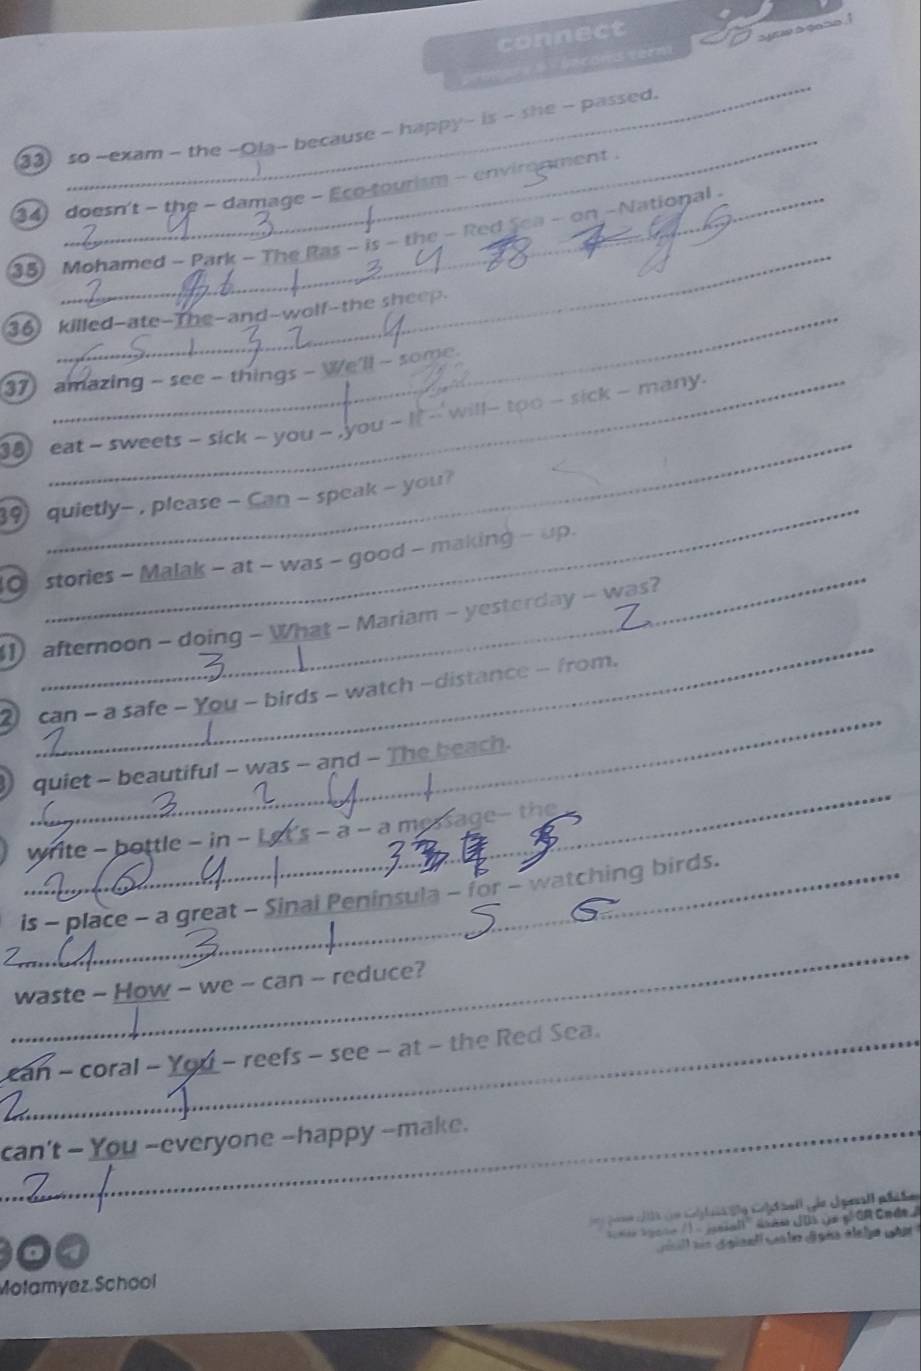 connect
33 so -exam - the -Ola- because - happy- is - she - passed.
1
34 doesn't - the - damage - Eco-tourism - environment .
2 4 3 1 5
35 Mohamed - Park - The Ras - is - the - Red Sea - on -National .
2 6 1 3 4
36 killed-ate-The-and-wolf-the sheep.
5 1 3 2 4
37 amazing - see - things - We'll - some.
1
38 eat - sweets - sick - you - ,you - If - will- too - sick - many.
39 quietly- , please - Can - speak - you?
stories - Malak - at - was - good - making - up.
afternoon - doing - What - Mariam - yesterday - was?
3 1 2
can - a safe - You - birds - watch -distance - from.
2 1
quiet - beautiful - was - and - The beach.
3 2 4 1
write - bottle - in - Let's - a - a message- the
2 6 4 1 3 5
is - place - a great - Sinai Peninsula - for - watching birds.
2 4 3 1 5 6
waste - How - we - can - reduce?
1
can - coral - You - reefs - see - at - the Red Sea.
2 1
can't - You -everyone -happy -make.
2 1
Motamyez.School